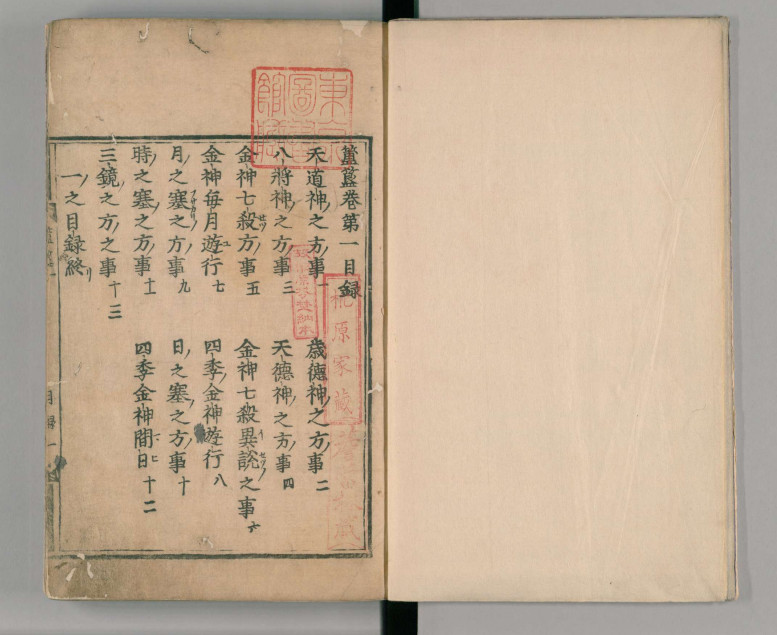 簠簋巻第一目録
天道神ノ之方ノ事一
歳徳神ノ之方ノ事二
八将神ノ之方ノ事三
天德神ノ之方ノ事四
金神七殺方ノ事五
金神七殺異説ノ之事六
金神毎月遊行七
四季ノ金神遊行八
月ノ之塞ノ之方ノ事九
日ノ之塞ノ之方ノ事十
時ノ之塞ノ之方ノ事十一
四季金神間日十二
三鏡ノ之方ノ之事十三
一ノ之目録終リ
目録一
東京
圖書
館蔵
原家蔵